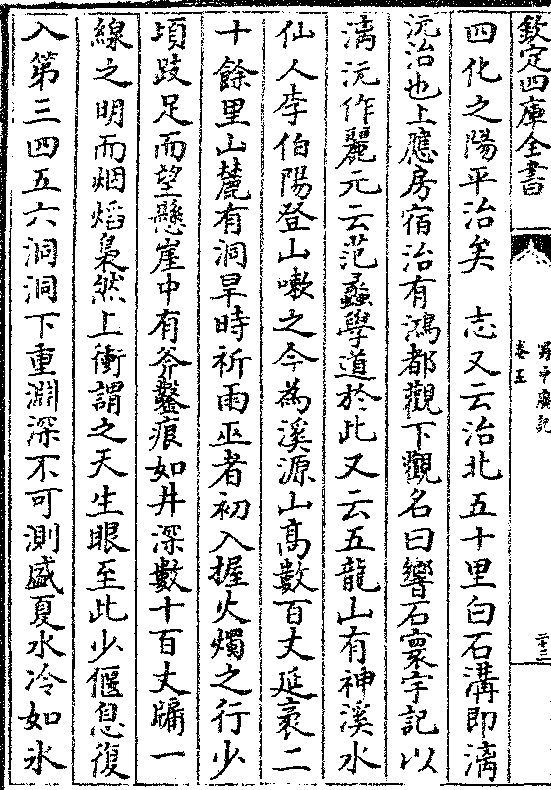 欽定四庫全書
蜀中廣記
卷五
二十三
四化之陽平治矣　志又云治北五十里白石溝即漓
沅治也上應房宿治有鴻都觀下觀名曰響石寰宇記以
漓沅作麗元云范蠡學道於此又云五龍山有神溪水
仙人李伯陽登山嗽之今為溪源山高數百丈延袤二
十餘里山麓有洞旱時祈雨巫者初入握火燭之行少
頃跂足而望懸崖中有斧鑿痕如井深數十百丈牖一
線之明而烟熖裊然上衝謂之天生眼至此少偃息復
入第三四五六洞洞下重淵深不可測盛夏水冷如氷